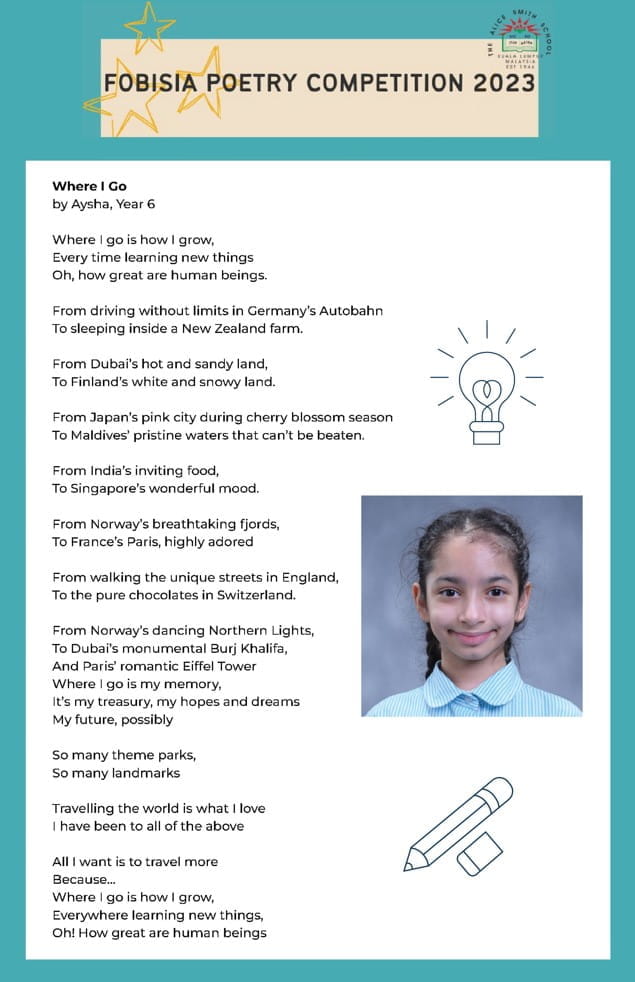 THE ALICE SMITH SCHOOL
KUALA LUMPUR
MALAYSIA
EST 1946
FOBISIA POETRY COMPETITION 2023
Where I Go
by Aysha, Year 6
Where I go is how I grow,
Every time learning new things
Oh, how great are human beings.
From driving without limits in Germany’s Autobahn
To sleeping inside a New Zealand farm.
From Dubai’s hot and sandy land,
To Finland’s white and snowy land.
From Japan’s pink city during cherry blossom season
To Maldives’ pristine waters that can’t be beaten.
From India’s inviting food,
To Singapore’s wonderful mood.
From Norway’s breathtaking fjords,
To France’s Paris, highly adored
From walking the unique streets in England,
To the pure chocolates in Switzerland.
From Norway’s dancing Northern Lights,
To Dubai’s monumental Burj Khalifa,
And Paris’ romantic Eiffel Tower
Where I go is my memory,
It’s my treasury, my hopes and dreams
My future, possibly
So many theme parks,
So many landmarks
Travelling the world is what I love
I have been to all of the above
All I want is to travel more
Because...
Where I go is how I grow,
Everywhere learning new things,
Oh! How great are human beings